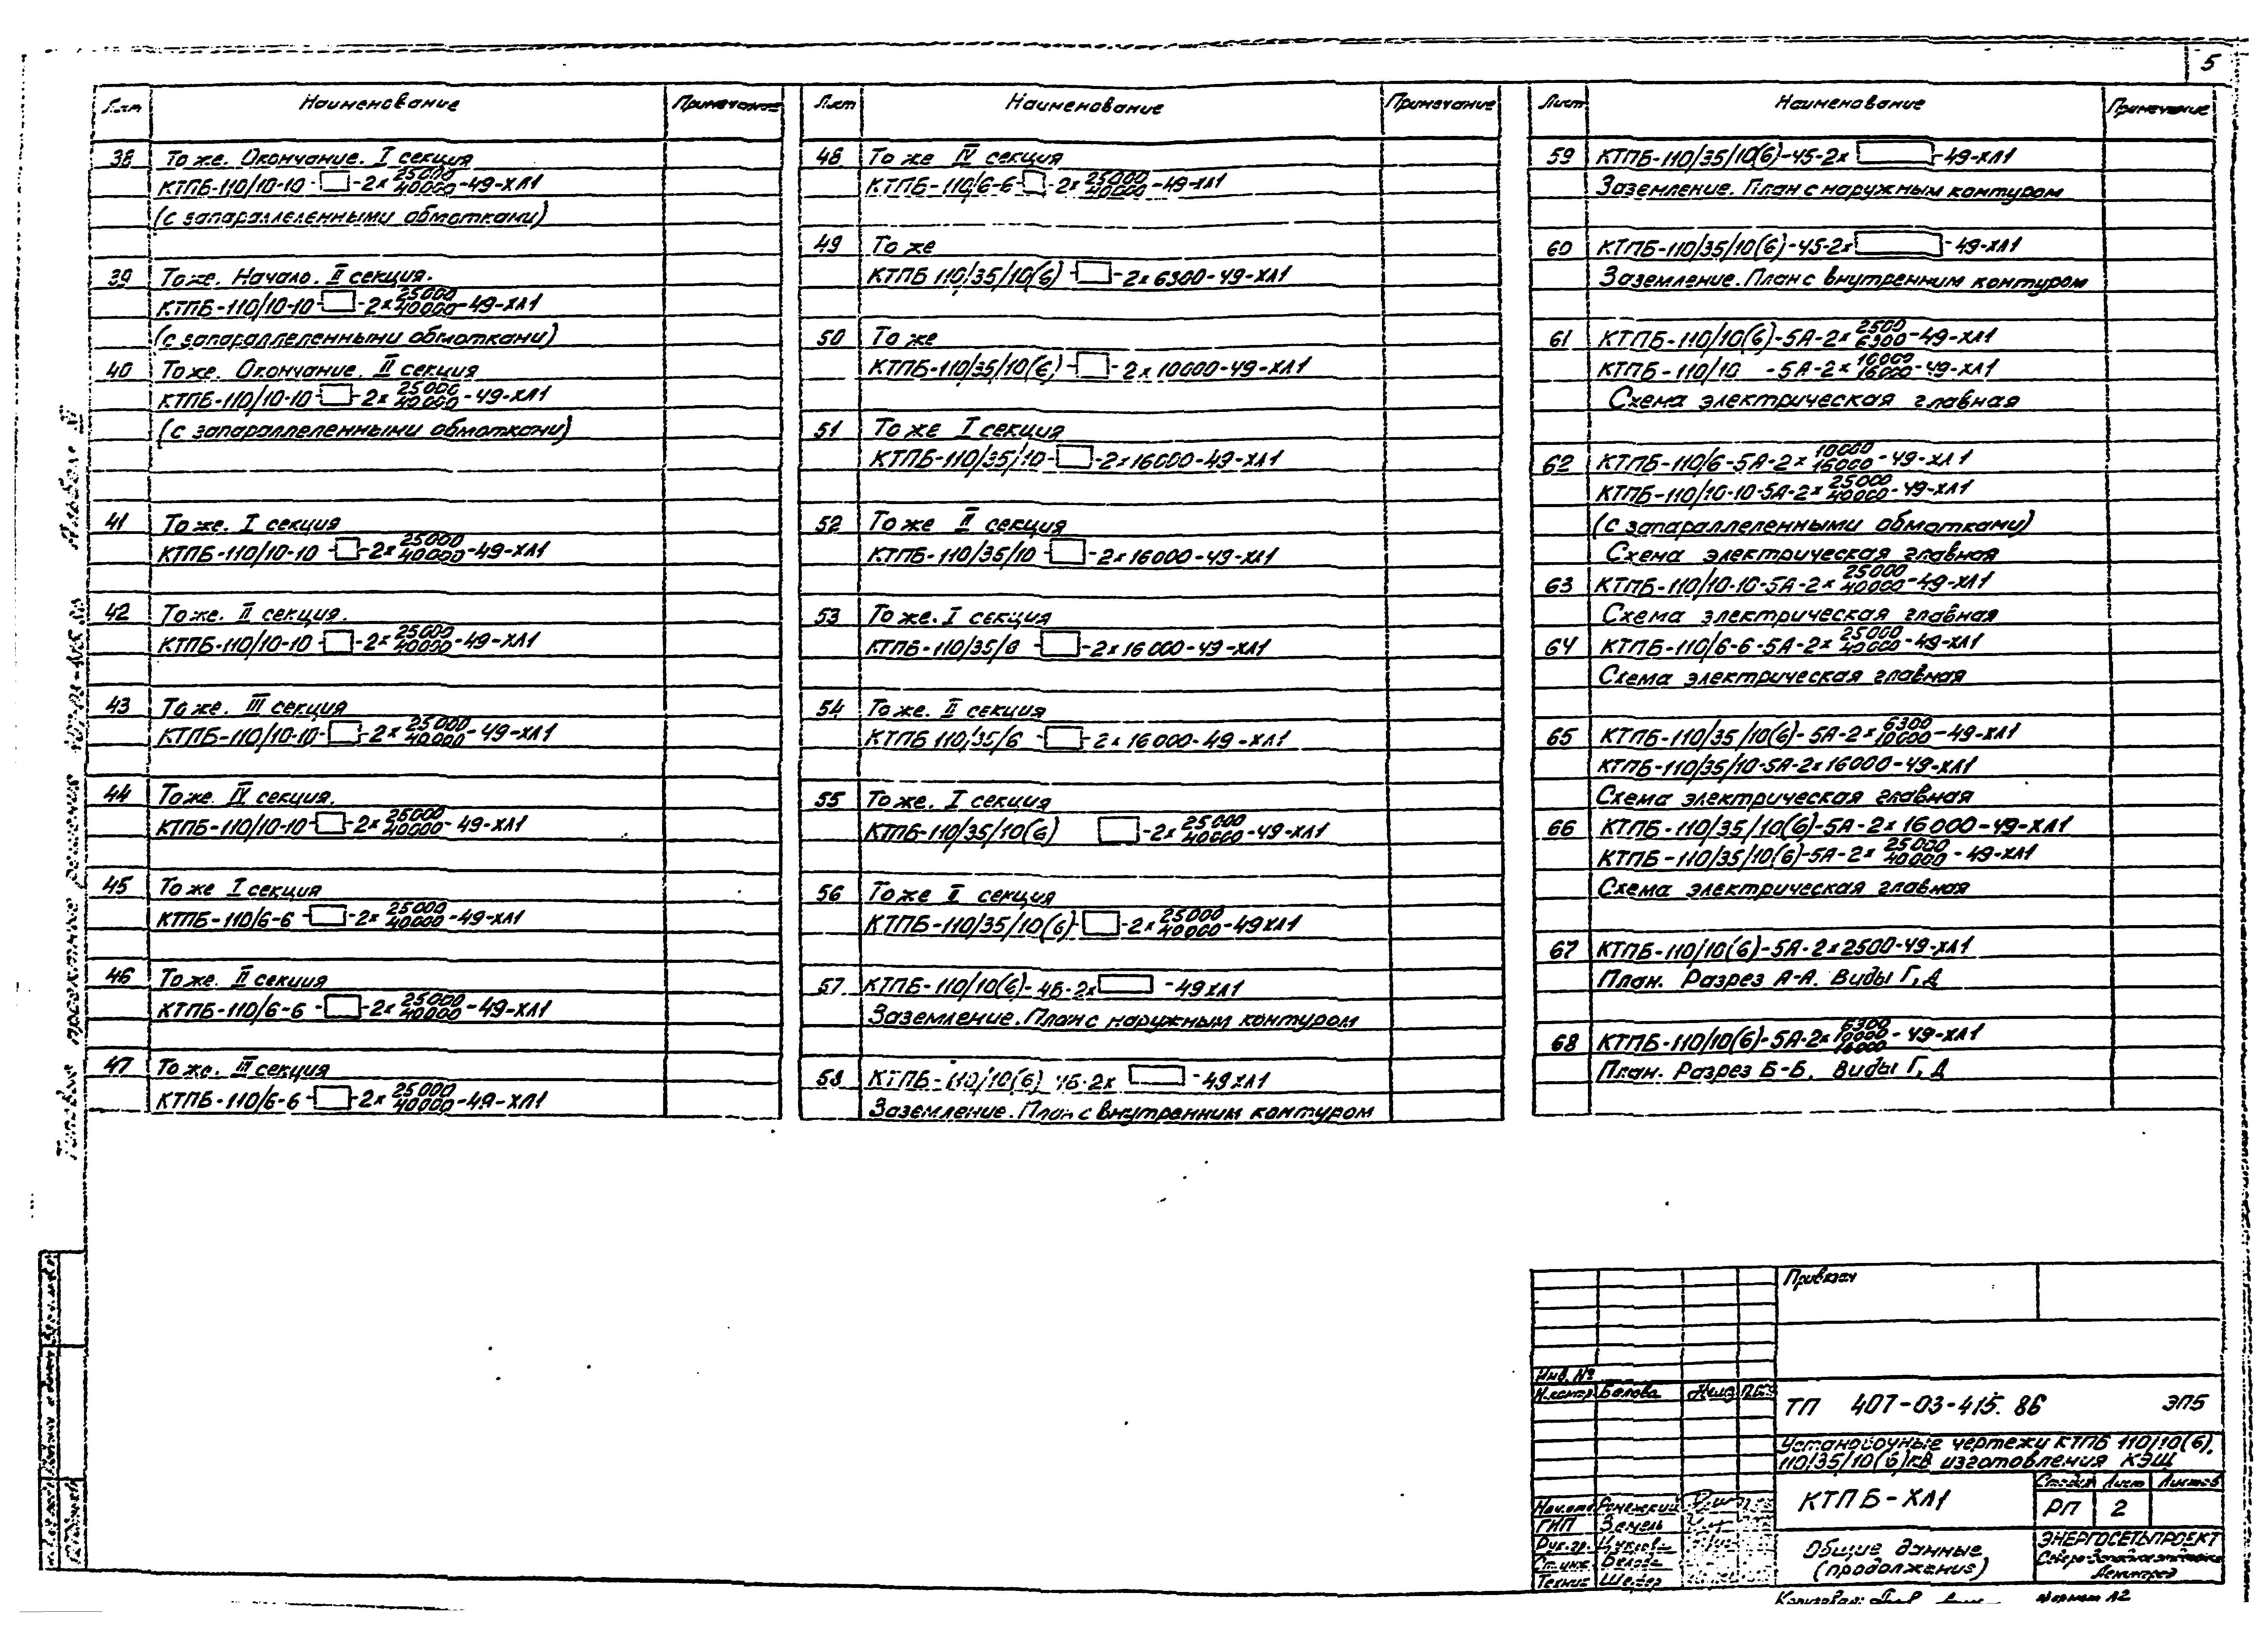 5
Лист Наименование Примечание
38 То же. Окончание. I секция
КТПБ-110/10-10-□-2×25000/40000-49-ХЛ1
(с запараллеленными обмотками)
39 То же. Начало. II секция.
КТПБ-110/10-10-□-2×25000/40000-49-ХЛ1
(с запараллеленными обмотками)
40 То же. Окончание. II секция
КТПБ-110/10-10-□-2×25000/40000-49-ХЛ1
(с запараллеленными обмотками)
41 То же. I секция
КТПБ-110/10-10-□-2×25000/40000-49-ХЛ1
42 То же. II секция.
КТПБ-110/10-10-□-2×25000/40000-49-ХЛ1
43 То же. III секция
КТПБ-110/10-10-□-2×25000/40000-49-ХЛ1
44 То же. IV секция.
КТПБ-110/10-10-□-2×25000/40000-49-ХЛ1
45 То же I секция
КТПБ-110/6-6-□-2×25000/40000-49-ХЛ1
46 То же. II секция
КТПБ-110/6-6-□-2×25000/40000-49-ХЛ1
47 То же. III секция
КТПБ-110/6-6-□-2×25000/40000-49-ХЛ1
Лист Наименование Примечание
48 То же IV секция
КТПБ-110/6-6-□-2×25000/40000-49-ХЛ1
49 То же
КТПБ 110/35/10(6)-□-2×6300-49-ХЛ1
50 То же
КТПБ-110/35/10(6)-□-2×10000-49-ХЛ1
51 То же I секция
КТПБ-110/35/10-□-2×16000-49-ХЛ1
52 То же II секция
КТПБ-110/35/10-□-2×16000-49-ХЛ1
53 То же. I секция
КТПБ-110/35/6-□-2×16000-49-ХЛ1
54 То же. II секция
КТПБ 110/35/6-□-2×16000-49-ХЛ1
55 То же. I секция
КТПБ-110/35/10(6) □-2×25000/40000-49-ХЛ1
56 То же II секция
КТПБ-110/35/10(6)-□-2×25000/40000-49ХЛ1
57 КТПБ-110/10(6)-4Б-2×□-49ХЛ1
Заземление. План с наружным контуром
58 КТПБ-110/10(6) 4Б-2× □-49ХЛ1
Заземление. План с внутренним контуром
Лист Наименование Примечание
59 КТПБ-110/35/10(6)-45-2×□-49-ХЛ1
Заземление. План с наружным контуром
60 КТПБ-110/35/10(6)-45-2×□-49-ХЛ1
Заземление. План с внутренним контуром
61 КТПБ-110/10(6)-5А-2×2500/6300-49-ХЛ1
КТПБ-110/10 -5А-2×10000/16000-49-ХЛ1
Схема электрическая главная
62 КТПБ-110/6-5А-2×10000/16000-49-ХЛ1
КТПБ-110/10-10-5А-2×25000/40000-49-ХЛ1
(с запараллеленными обмотками)
Схема электрическая главная
63 КТПБ-110/10-10-5А-2×25000/40000-49-ХЛ1
Схема электрическая главная
64 КТПБ-110/6-6-5А-2×25000/40000-49-ХЛ1
Схема электрическая главная
65 КТПБ-110/35/10(6)-5А-2×6300/10000-49-ХЛ1
КТПБ-110/35/10-5А-2×16000-49-ХЛ1
Схема электрическая главная
66 КТПБ-110/35/10(6)-5А-2×16000-49-ХЛ1
КТПБ-110/35/10(6)-5А-2×25000/40000-49-ХЛ1
Схема электрическая главная
67 КТПБ-110/10(6)-5А-2×2500-49-ХЛ1
План. Разрез А-А. Виды Г, Д
68 КТПБ-110/10(6)-5А-2×6300/10000/16000-49-ХЛ1
План. Разрез Б-Б. Виды Г, Д
Привязан
Инв. №
Н.контр Белова
ТП 407-03-415.86 ЭП5
Установочные чертежи КТПБ 110/10(6),
110/35/10(6)кВ изготовления КЭЩ
КТПБ-ХЛ1
Стадия Лист Листов
РП 2
Нач.отд Роменский
ГИП Земель
Рук.гр.
Ст.инж. Белова
Техник
Общие данные
(продолжение)
ЭНЕРГОСЕТЬПРОЕКТ
Северо-Западное отделение
Ленинград
Копировал: Формат А2
Типовые проектные решения Альбом